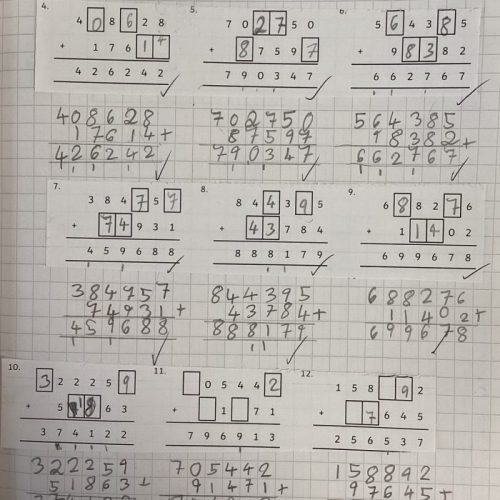 4. 5. 6.
4 0 8 6 2 8 7 0 2 7 5 0 5 6 4 3 8 5
+ 1 7 6 1 4 + 8 7 5 9 7 + 9 8 3 8 2
4 2 6 2 4 2 7 9 0 3 4 7 6 6 2 7 6 7
408628 702750 564385
17614+ 87597+ 98382+
426242 790347 662767
7. 8. 9.
3 8 4 7 5 7 8 4 4 3 9 5 6 8 8 2 7 6
+ 7 4 9 3 1 + 4 3 7 8 4 + 1 1 4 0 2
4 5 9 6 8 8 8 8 8 1 7 9 6 9 9 6 7 8
384757 844395 688276
74931+ 43784+ 11402+
459688 888179 699678
10. 11. 12.
3 2 2 2 5 9 0 5 4 4 2 1 5 8 9 2
+ 5 1 8 6 3 + 1 7 1 + 7 6 4 5
3 7 4 1 2 2 7 9 6 9 1 3 2 5 6 5 3 7
322259 705442 158892
51863+ 91471+ 97645+